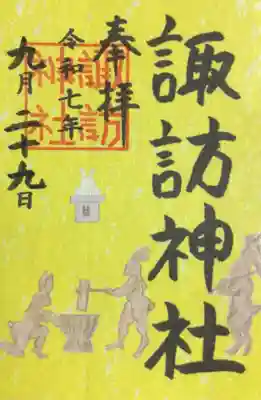 諏訪神社
奉拝
令和七年
九月二十九日
諏訪
神社